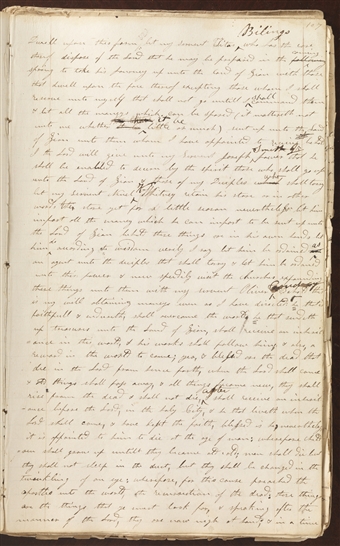 107
Bilings
dwell upon this farm let my servent Titus, who has the care
thereof dispose of the land that he may be prepared in the coming
spring to take his Journey up unto the land of Zion with those
that dwell upon the face thereof excepting those whom I shall
reserve unto myself that shall not go untill I shall command them
& let all the moneys which can be spared it mattereth not
to me whether it be little or much sent up unto the Land
of Zion unto them whom I have appointed to receive behold
I the Lord will give unto my servent Joseph Smith Jr power that he
shall be enabled to discern by the spirit those who shall go up
unto the land of Zion & those of my Desiples who shall tarry
let my servent Whitney retain his store or in other
words the store yet for a little season nevertheless let him
impart all the money which he can impart to be sent up unto
the Land of Zion behold these things are in his own hands let
him according to wisdom verily I say let him be ordained as
an agent unto the desiples that shall tarry & let him be ordained
unto this power & now speedily visit the churches expounding
these things unto them with my servent Oliver Cowdery behold this
is my will obtaining moneys even as I have directed he that is
faithfull & endureth shall overcome the world he that sendeth
up treasures unto the Land of Zion shall receive an inherit
ance in this world & his works shall follow him & also a
reward in the world to come, yea, & blessed are the dead that
die in the Lord from hence forth when the Lord shall come
& old things shall pass away & all things become new, they shall
rise from the dead & shall not die after & shall receive an inherit
ance before the Lord, in the holy City, & he that liveth when the
Lord shall come, & have kept the faith, blessed is he, nevertheless
it is appointed to him to die at the age of man; wherefore child
ren shall grow up untill they become old, old men shall die but
they shall not sleep in the dust, but they shall be changed in the
twinkling of an eye; wherefore, for this cause preached the
apostles unto the world, the resurrection of the dead, these things
are the things that ye must look for, & speaking after the
manner of the Lord, they are now nigh at hand, & in a time